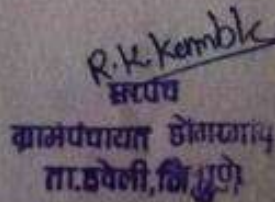 R.K. Kamble
सरपंच
ग्रामपंचायत डोंगरगांव
ता.हवेली, जि.पुणे